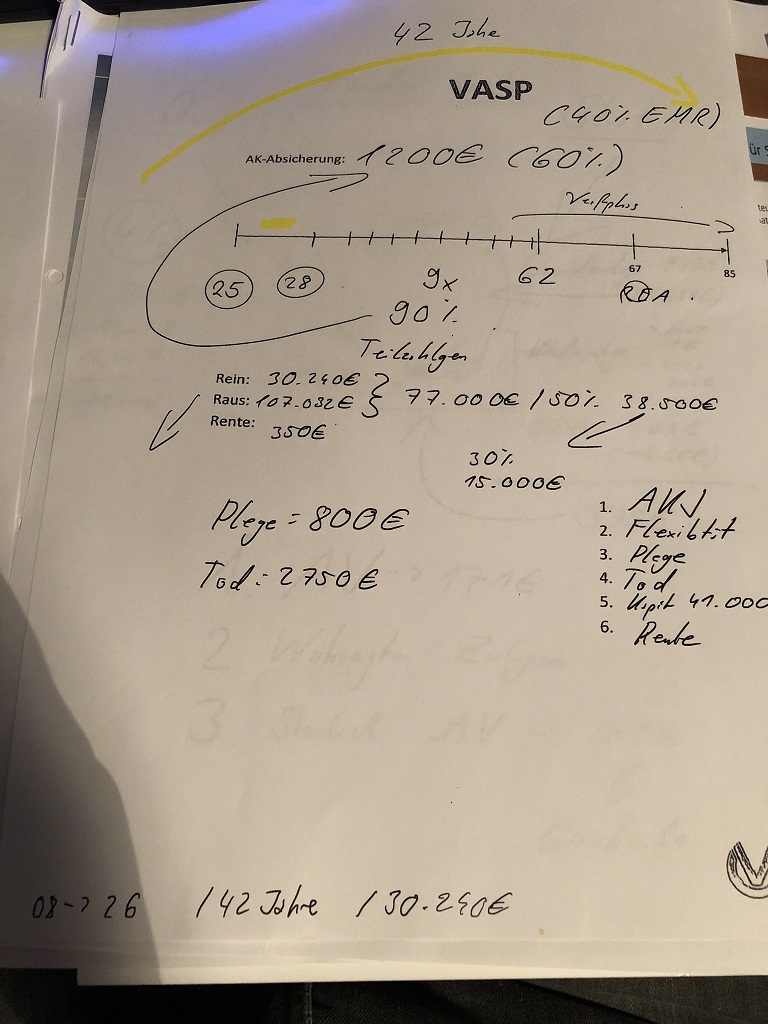 42 Jahre
VASP
(40% EMR)
AK-Absicherung: 1200€ (60%)
25 28 9x 62 67 85
REA.
90%
Teilzahlgen
Rein: 30.240€
Raus: 107.032€ } 77.000€ / 50% 38.500€
Rente: 350€
30%
15.000€
Plege = 800€
Tod: 2750€
1. AKV
2. Flexibtät
3. Plege
4. Tod
5. Kapit 41.000
6. Rente
08-> 26 / 42 Jahre / 30.240€